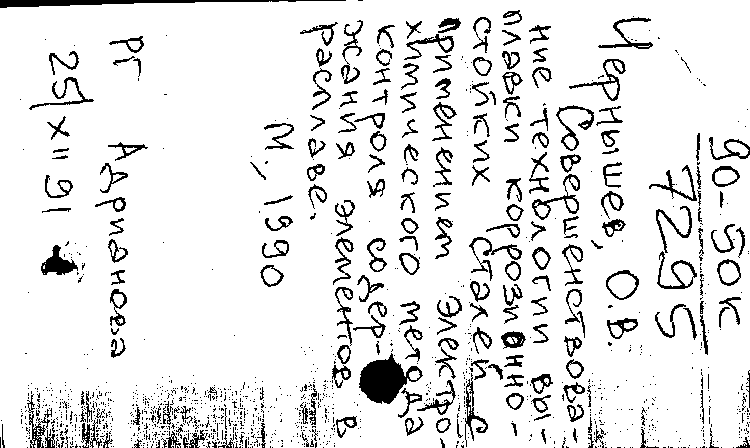 90-50к
7295
Чернышев, О.В.
Совершенствова-
ние технологии вы-
плавки коррозионно-
стойких сталей с
применением электро-
химического метода
контроля содер-
жания элементов в
расплаве.
М., 1990
РГ Адрианова
25/XII 91